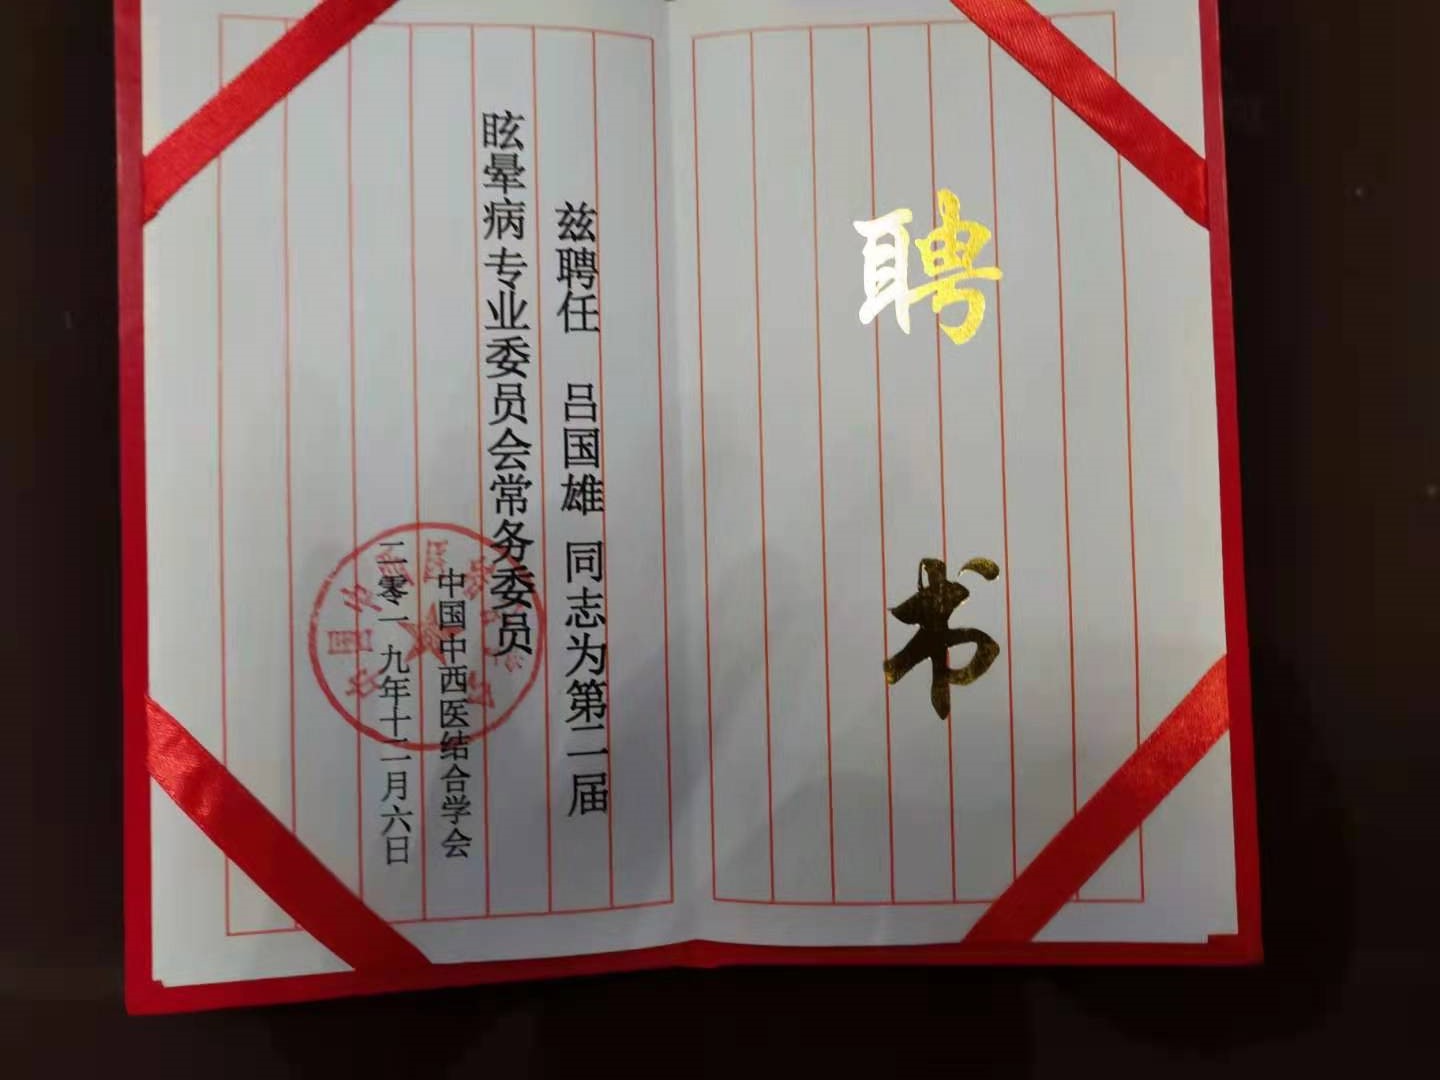 聘书
兹聘任 吕国雄 同志为第二届
眩晕病专业委员会常务委员
中国中西医结合学会
二零一九年十二月六日